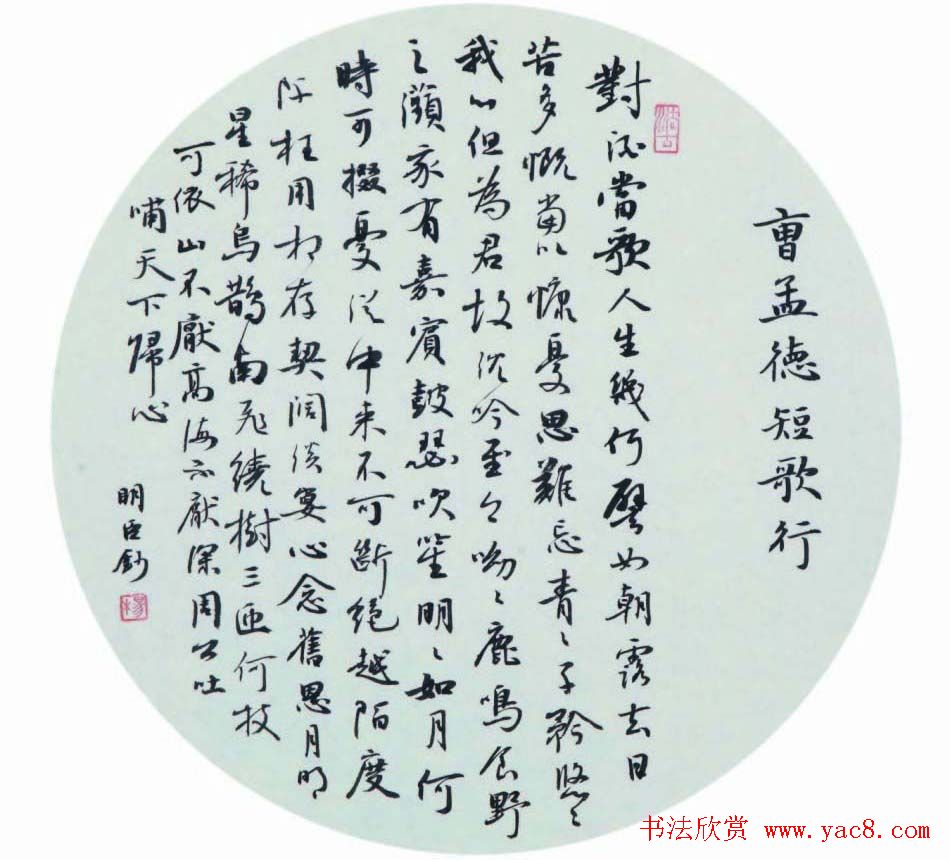 曹孟德短歌行
對酒當歌人生幾何譬如朝露去日
苦多慨當以慷憂思難忘青〻子衿悠〻
我心但為君故沉吟至今呦〻鹿鳴食野
之蘋我有嘉賓鼓瑟吹笙明〻如月何
時可掇憂從中來不可斷絕越陌度
阡枉用相存契闊談宴心念舊恩月明
星稀烏鵲南飛繞樹三匝何枝
可依山不厭高海不厭深周公吐
哺天下歸心
明臣鈔
楊
书法欣赏 www.yac8.com